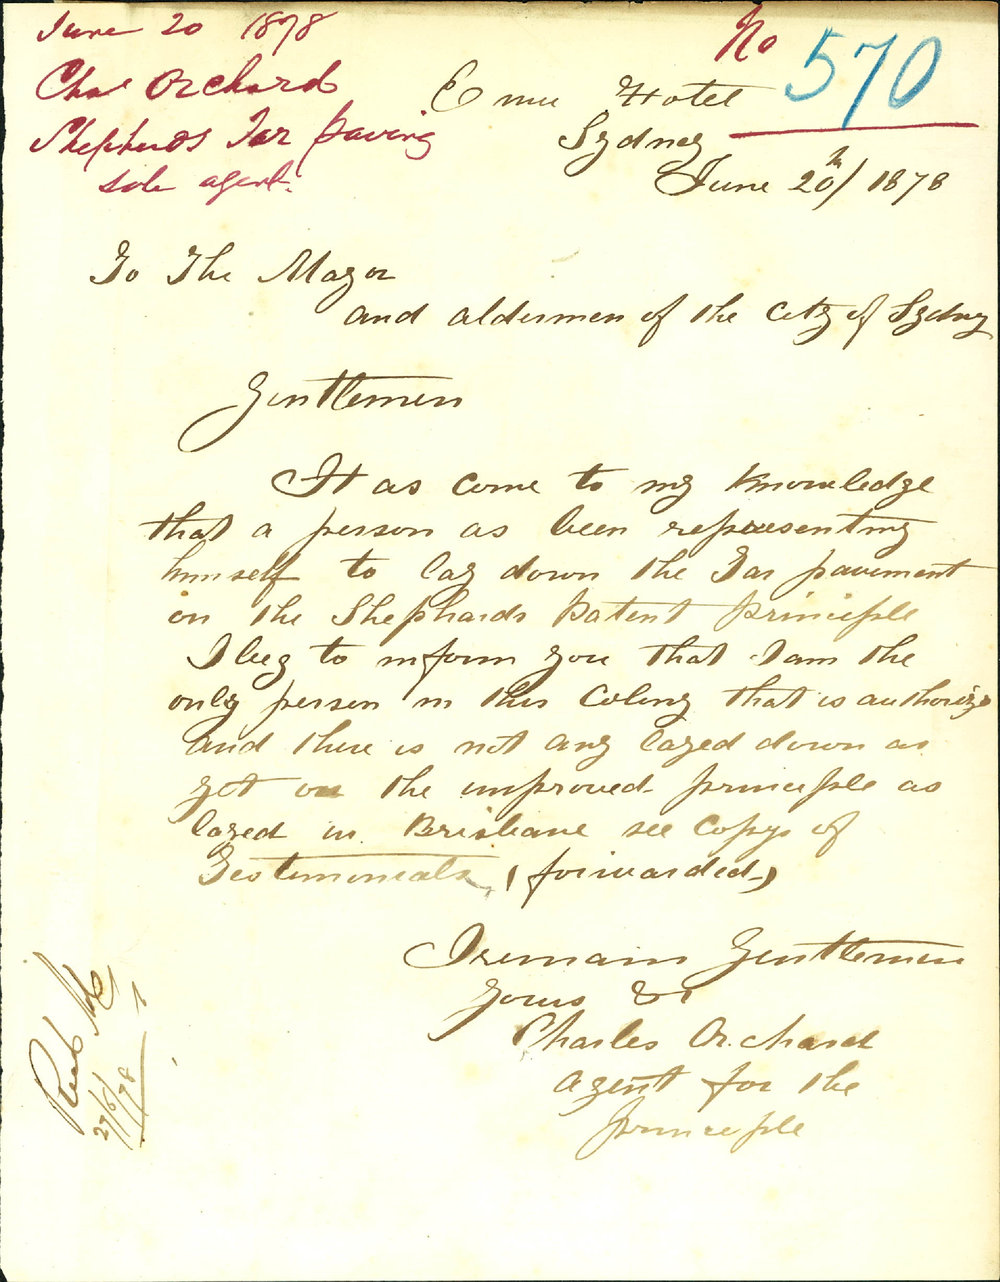 June 20 1878
Chas Orchard
Shepherds Tar paving
sole agent.
No 570
Emu Hotel
Sydney
June 20th/ 1878
To The Mayor
and aldermen of the city of Sydney
Gentlemen
It as come to my knowledge
that a person as been representing
himself to lay down the Tar pavement
on the Shephards Patent principle
I beg to inform you that I am the
only person in this Colony that is authorize
and there is not any layed down as
yet on the improved principle as
layed in Brisbane see Copys of
Testimonials, (forwarded,)
I remain Gentlemen
Yours &c
Charles Orchard
agent for the
principle
27/6/78